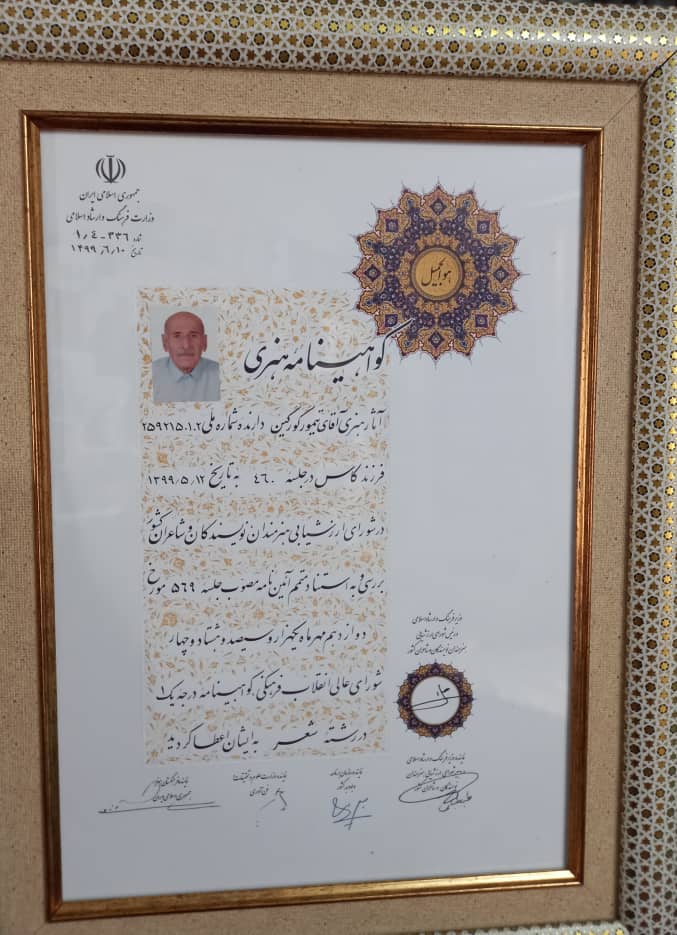 جمهوری اسلامی ایران
وزارت فرهنگ و ارشاد اسلامی
شماره ۱/۴-۳۳۶
تاریخ ۱۳۹۹/۶/۱۰
هوالجمیل
گواهینامه هنری
آثار هنری آقای تیمور گورگین دارنده شماره ملی ۲۵۹۲۱۵۰۱۰۲
فرزند کاس در جلسه ۴۶۰ به تاریخ ۱۳۹۹/۵/۱۲
در شورای ارزشیابی هنرمندان نویسندگان و شاعران کشور
بررسی و به استناد متمم آئین نامه مصوب جلسه ۵۶۹ مورخ
دوازدهم مهرماه یکهزار و سیصد و هشتاد و چهار
شورای عالی انقلاب فرهنگی گواهینامه درجه یک ۱
در رشته شعر به ایشان اعطا گردید
وزیر فرهنگ و ارشاد اسلامی
و رئیس شورای ارزشیابی
هنرمندان نویسندگان و شاعران کشور
نماینده وزیر فرهنگ و ارشاد اسلامی
نماینده سازمان
نماینده وزارت علوم تحقیقات
فن آوری
نماینده فرهنگستان هنر
جمهوری اسلامی ایران